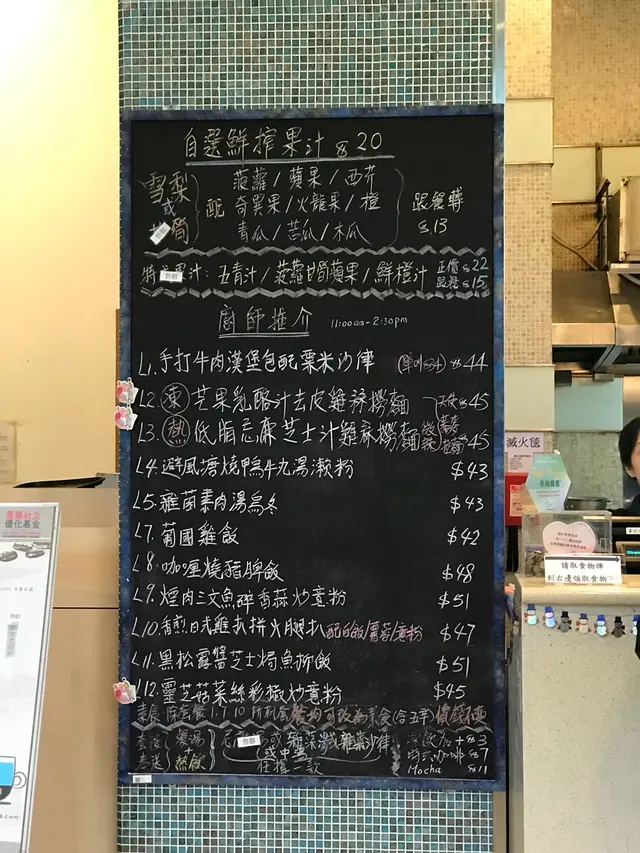 自選鮮榨果汁 $20
雪梨
或
配
菠蘿/蘋果/西芹
奇異果/火龍果/橙
青瓜/苦瓜/木瓜
跟餐轉
$13
果汁:五青汁/菠蘿甘筍蘋果/鮮橙汁
正價$22
跟餐$15
廚師推介 11:00am-2:30pm
L1.手打牛肉漢堡包配粟米沙律 $44
L2.凍 芝果乳酪汁去皮雞絲撈麵 $45
L3.熱 低脂芝麻芝士汁雞絲撈麵 $45
L4.避風塘燒鴨牛丸湯瀨粉 $43
L5.雜菌素肉湯烏冬 $43
L7.葡國雞飯 $42
L8.咖喱燒豬脾飯 $48
L9.煙肉三文魚碎香蒜炒意粉 $51
L10.香煎日式雞扒拼火腿扒配白飯/薯蓉/意粉 $47
L11.黑松露醬芝士焗魚柳飯 $51
L12.靈芝菇菜絲彩椒炒意粉 $45
熱飲
任擇一款
Mocha $11
滅火毯
請取食物牌
到右邊領取食物
優化基金